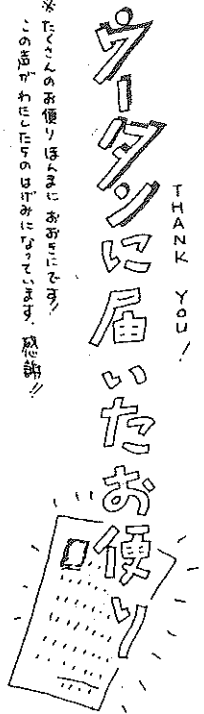 THANK YOU!
ウータンに届いたお便り
※たくさんのお便りほんまにおおきにです!
この声がわたしたちのはげみになっています。感謝!!